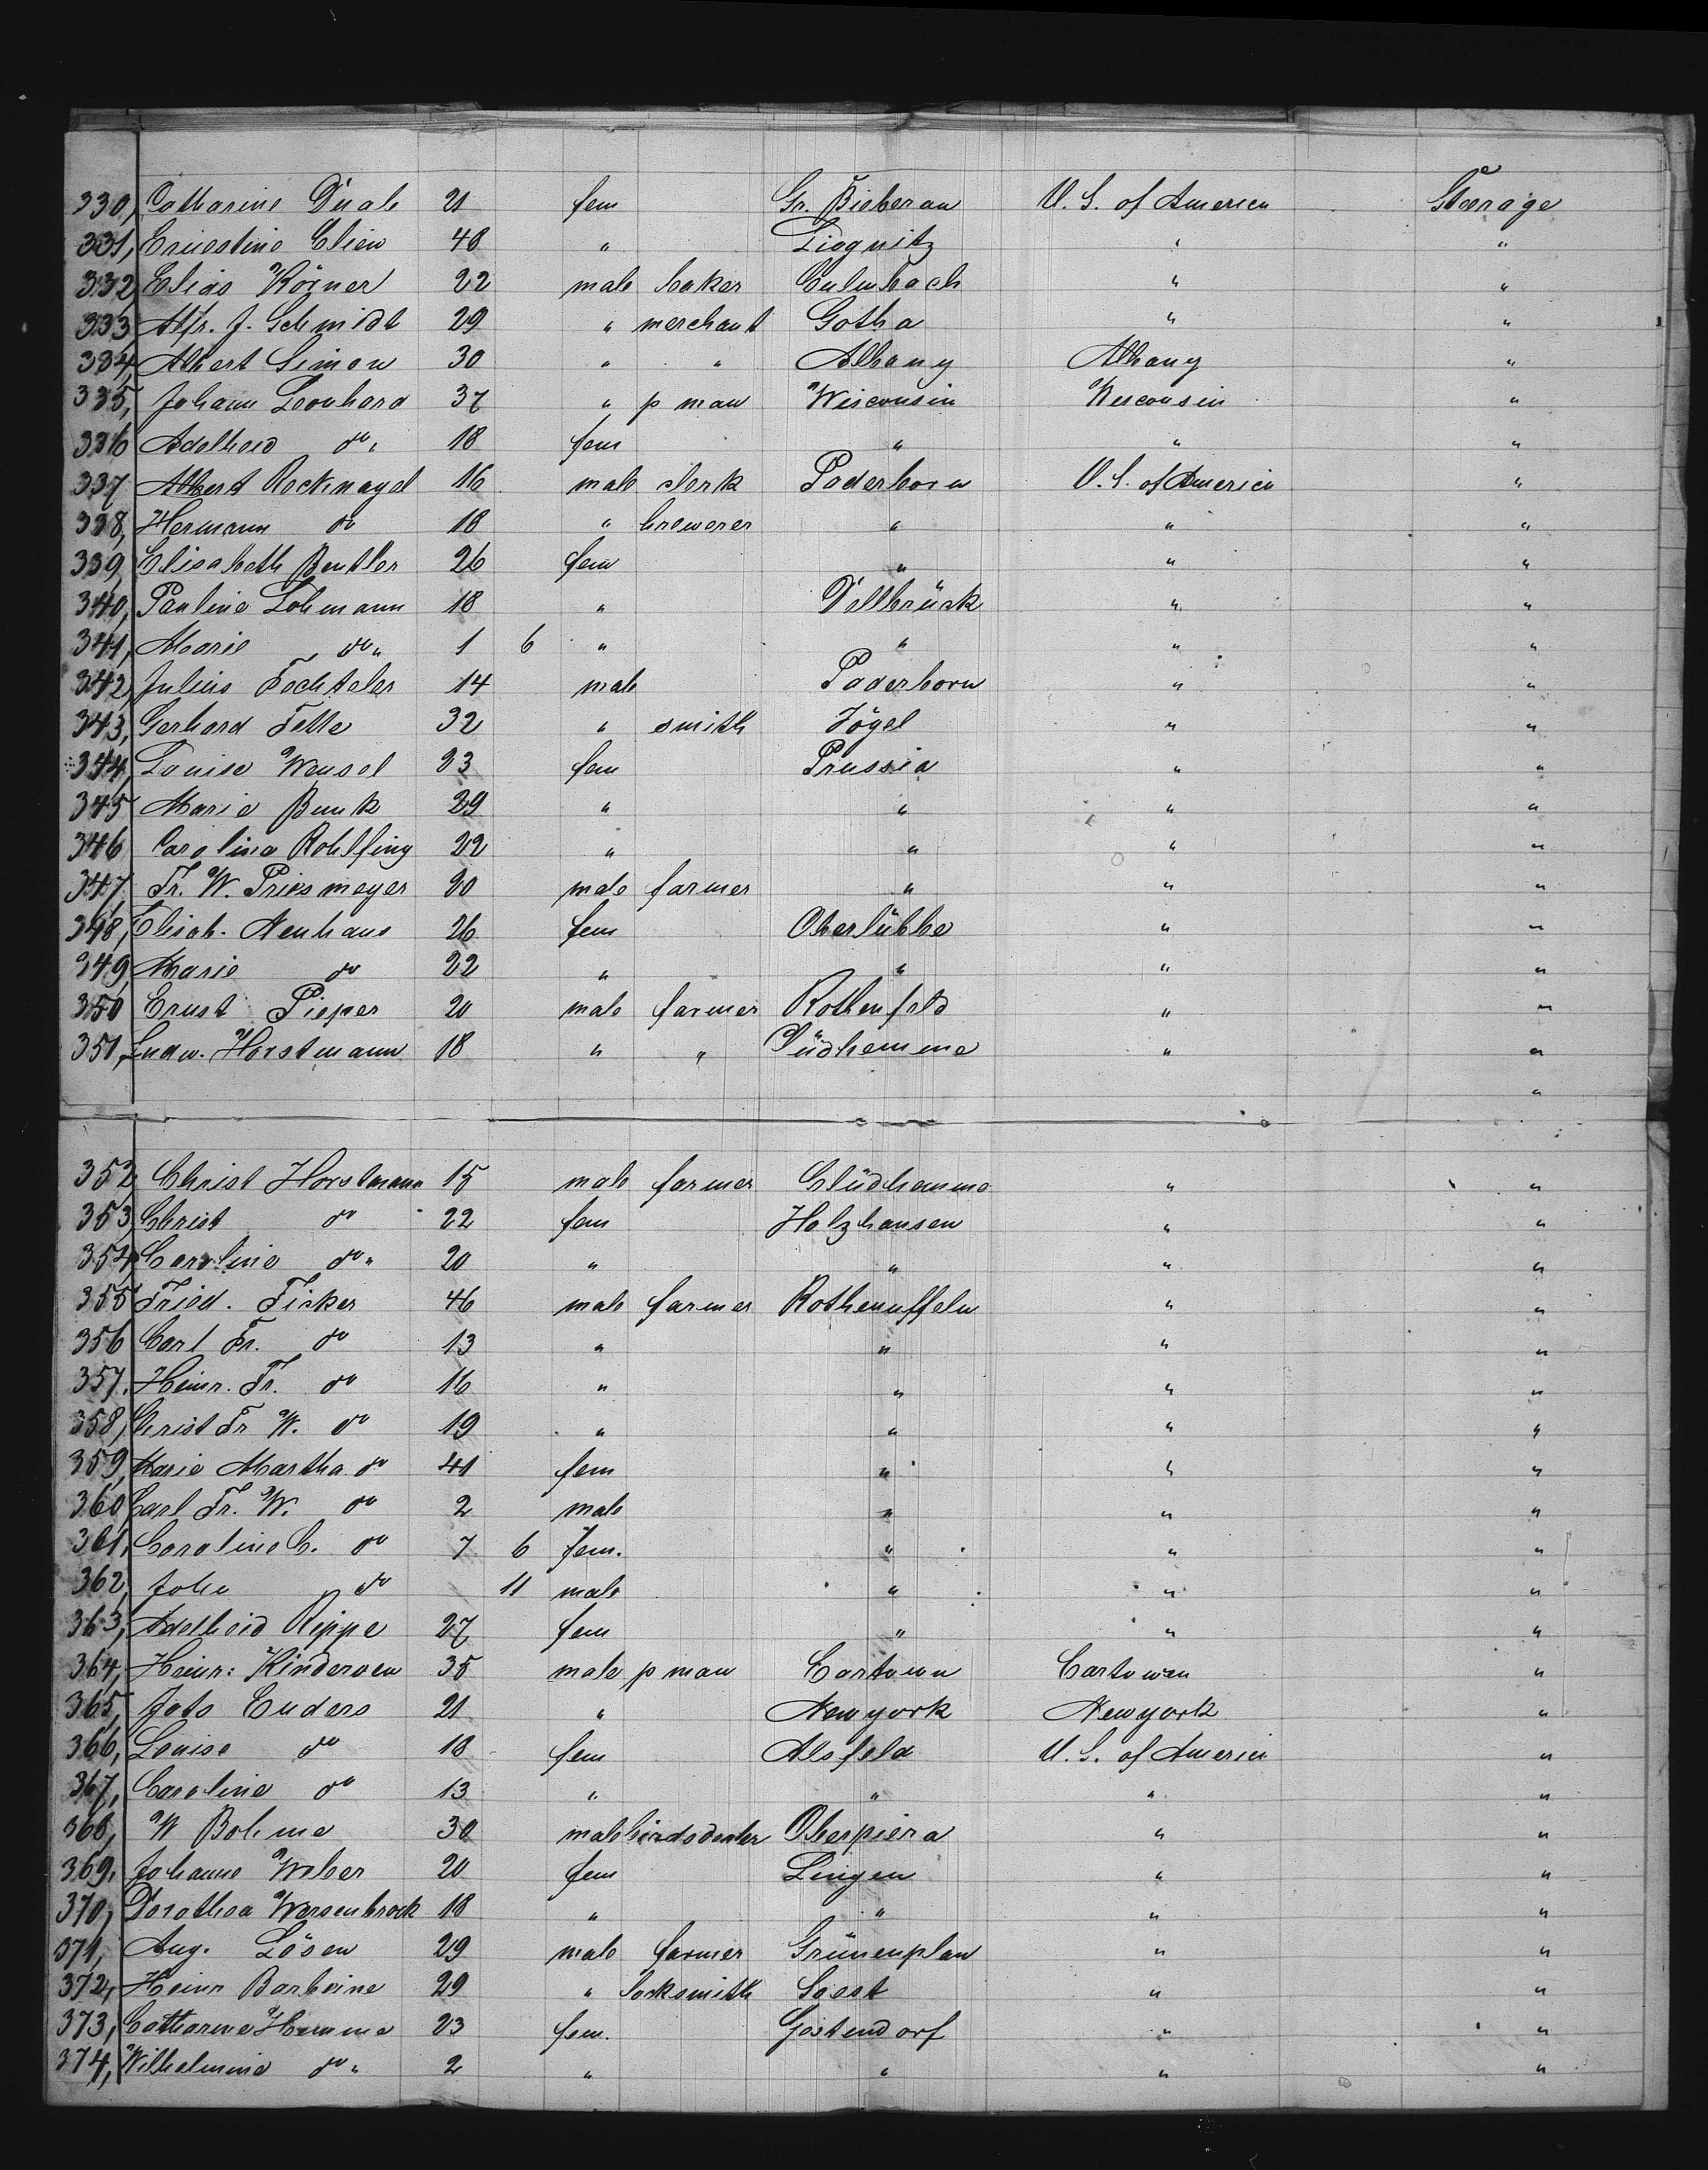 330, Catharine Duale 21 fem Gr. Bieberau U. S. of America Steerage
331, Ernestine Clien 48 " Liegnitz " "
332 Elias Körner 22 male baker Culmbach " "
333, Alfr. J. Schmidt 29 " merchant Gotha " "
334, Albert Simon 30 " " Albany Albany "
335, Johann Leonhard 37 " p man Wisconsin Wisconsin "
336 Adelheid do 18 fem " " "
337 Albert Rocknagel 16 male clerk Paderborn U. S. of America "
338, Hermann do 18 " brewerer " " "
339, Elisabeth Beutler 26 fem " " "
340, Pauline Lohmann 18 " Dellbrück " "
341, Marie do " 1 6 " " " "
342, Julius Fechteler 14 male Paderborn " "
343, Gerhard Fette 32 " smith Jögel " "
344, Louise Wensel 23 fem Prussia " "
345 Marie Bunk 29 " " " "
346 Carolina Rohlfing 22 " " " "
347, Fr. W. Priesmeyer 20 male farmer " " "
348, Elisab. Neuhaus 26 fem Oberlübbe " "
349, Marie do 22 " " " "
350 Ernst Pieper 20 male farmer Rothenfeld " "
351, Ludw. Horstmann 18 " " Südhemme " "
"
352, Christ Horstmann 15 male farmer Südhemme " "
353, Christ do 22 fem Holzhausen " "
354, Caroline do " 20 " " " "
355 Fried. Fisker 46 male farmer Rothenuffeln " "
356 Carl Fr. do 13 " " " "
357. Heinr. Fr. do 16 " " " "
358, Christ Fr W. do 19 " " " "
359, Marie Martha do 41 fem " " "
360 Carl Fr. W. do 2 male " " "
361, Caroline C. do 7 6 fem. " " "
362, John do 11 male " " "
363, Adelheid Rippe 27 fem " " "
364, Heinr: Kinderven 35 male p man Cartown Cartowen "
365, Joh's Enders 21 " Newyork Newyork "
366, Louise do 18 fem Alsfeld U. S. of America "
367, Caroline do 13 " " " "
368, W Bohme 30 male birdsdealer Oberpiera " "
369, Johanne Weber 20 fem Lingen " "
370, Dorothea Wersenbrock 18 " " " "
371, Aug. Lösen 29 male farmer Grünenplan " "
372, Heinr Barbeine 29 " locksmith Soest " "
373, Catharine Hemme 23 fem. Gostendorf " "
374, Wilhelmine do " 2 " " " "